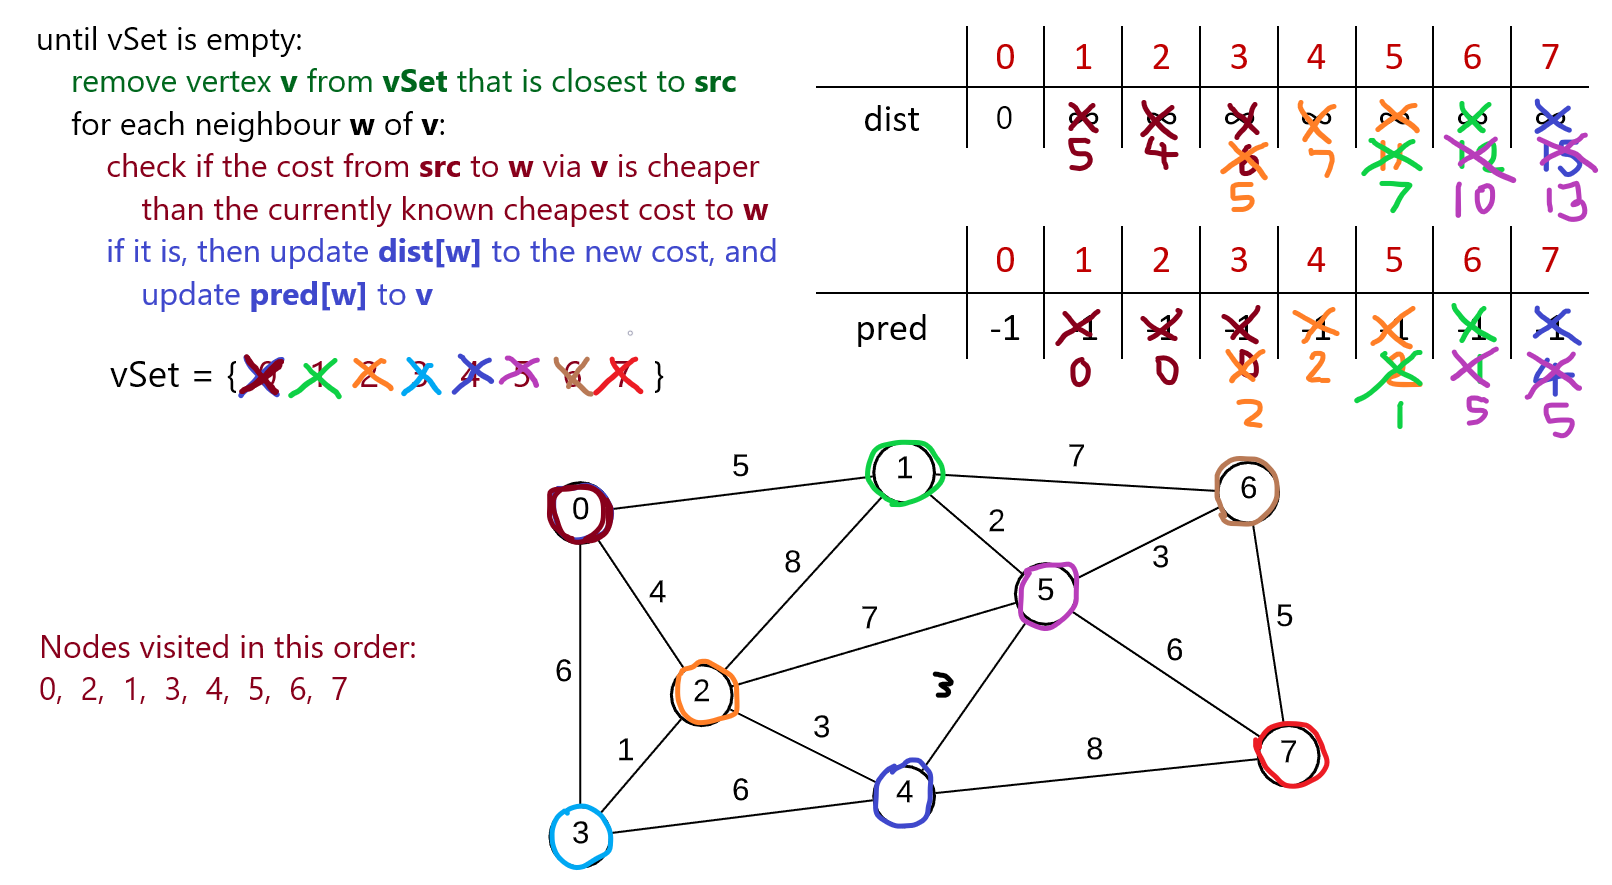 until vSet is empty:
remove vertex v from vSet that is closest to src
for each neighbour w of v:
check if the cost from src to w via v is cheaper
than the currently known cheapest cost to w
if it is, then update dist[w] to the new cost, and
update pred[w] to v
vSet = { 0 1 2 3 4 5 6 7 }
0 1 2 3 4 5 6 7
dist 0 ∞ ∞ ∞ ∞ ∞ ∞ ∞
5 4 6 7 11 12 15
5 7 10 13
0 1 2 3 4 5 6 7
pred -1 -1 -1 -1 -1 -1 -1 -1
0 0 0 2 2 1 4
2 1 5 5
Nodes visited in this order:
0, 2, 1, 3, 4, 5, 6, 7
5
1
7
6
0
2
8
3
4
5
7
5
6
6
2
3
3
1
8
7
6
4
3